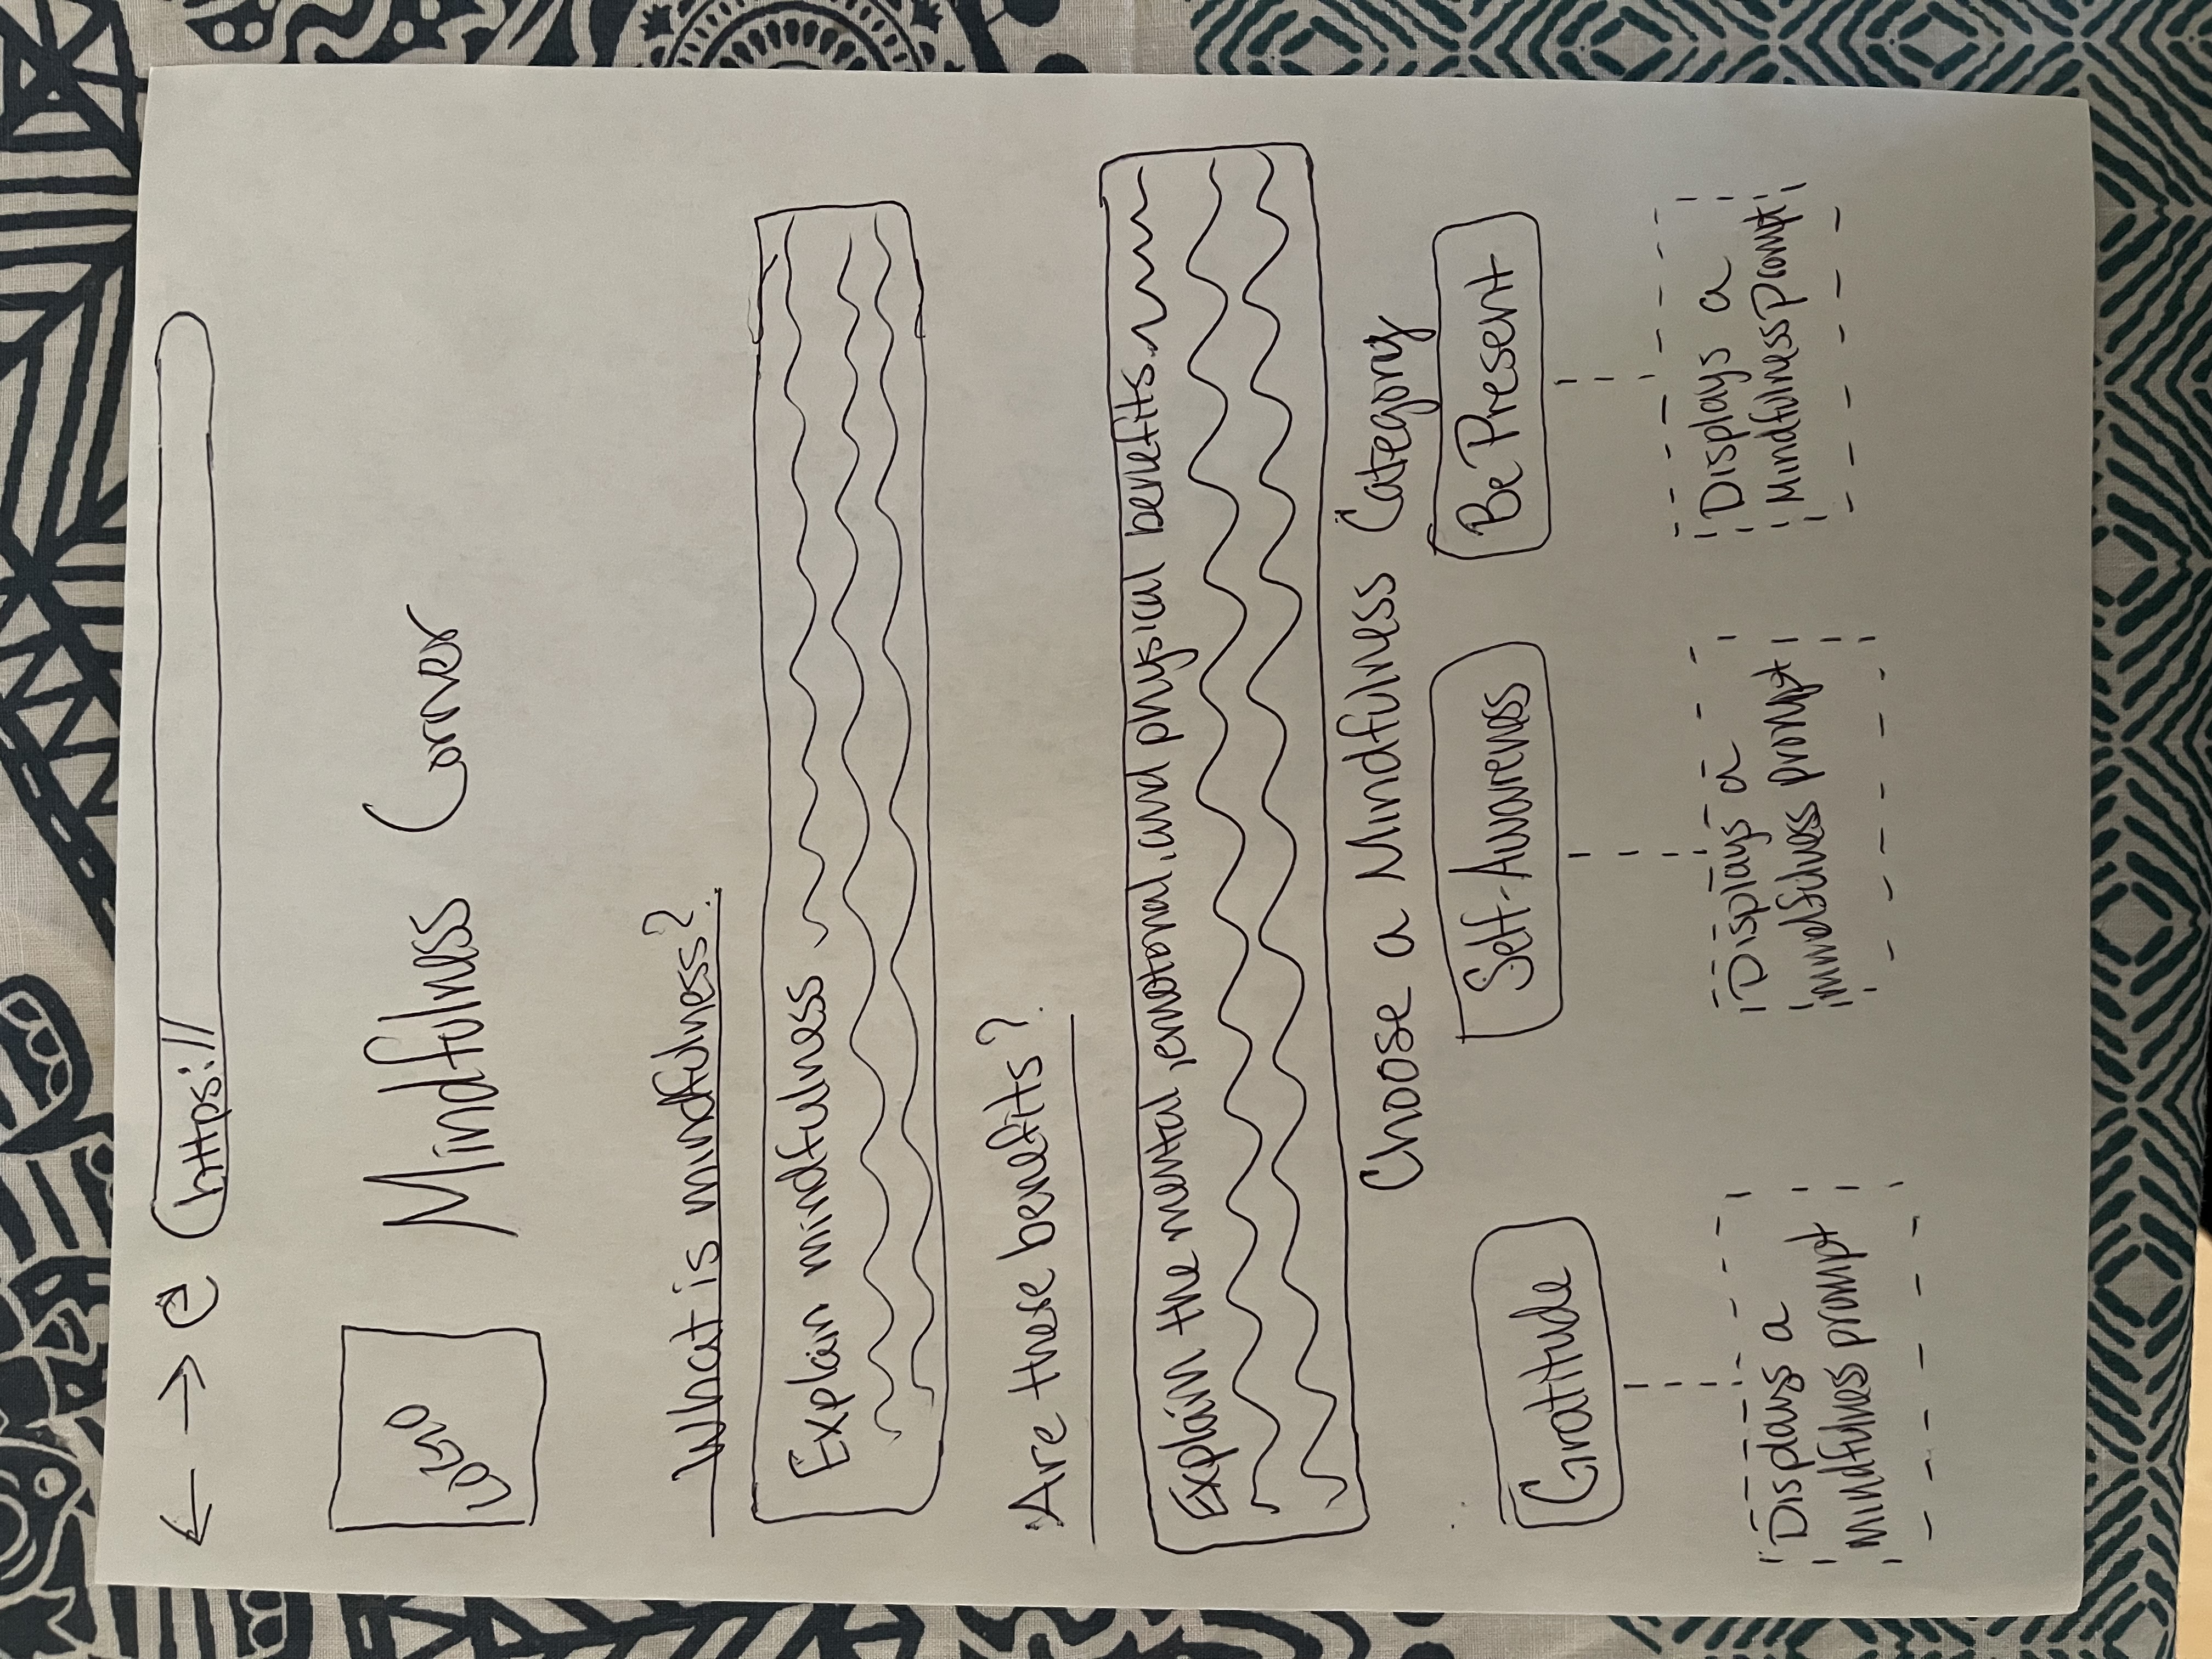 https://
LOGO
Mindfulness Corner
What is mindfulness?
Explain mindfulness
Are there benefits?
Explain the mental, emotional, and physical benefits.
Choose a Mindfulness Category
Gratitude
Self-Awareness
Be Present
Displays a
Mindfulness prompt
Displays a
mindfulness prompt
Displays a
Mindfulness Prompt